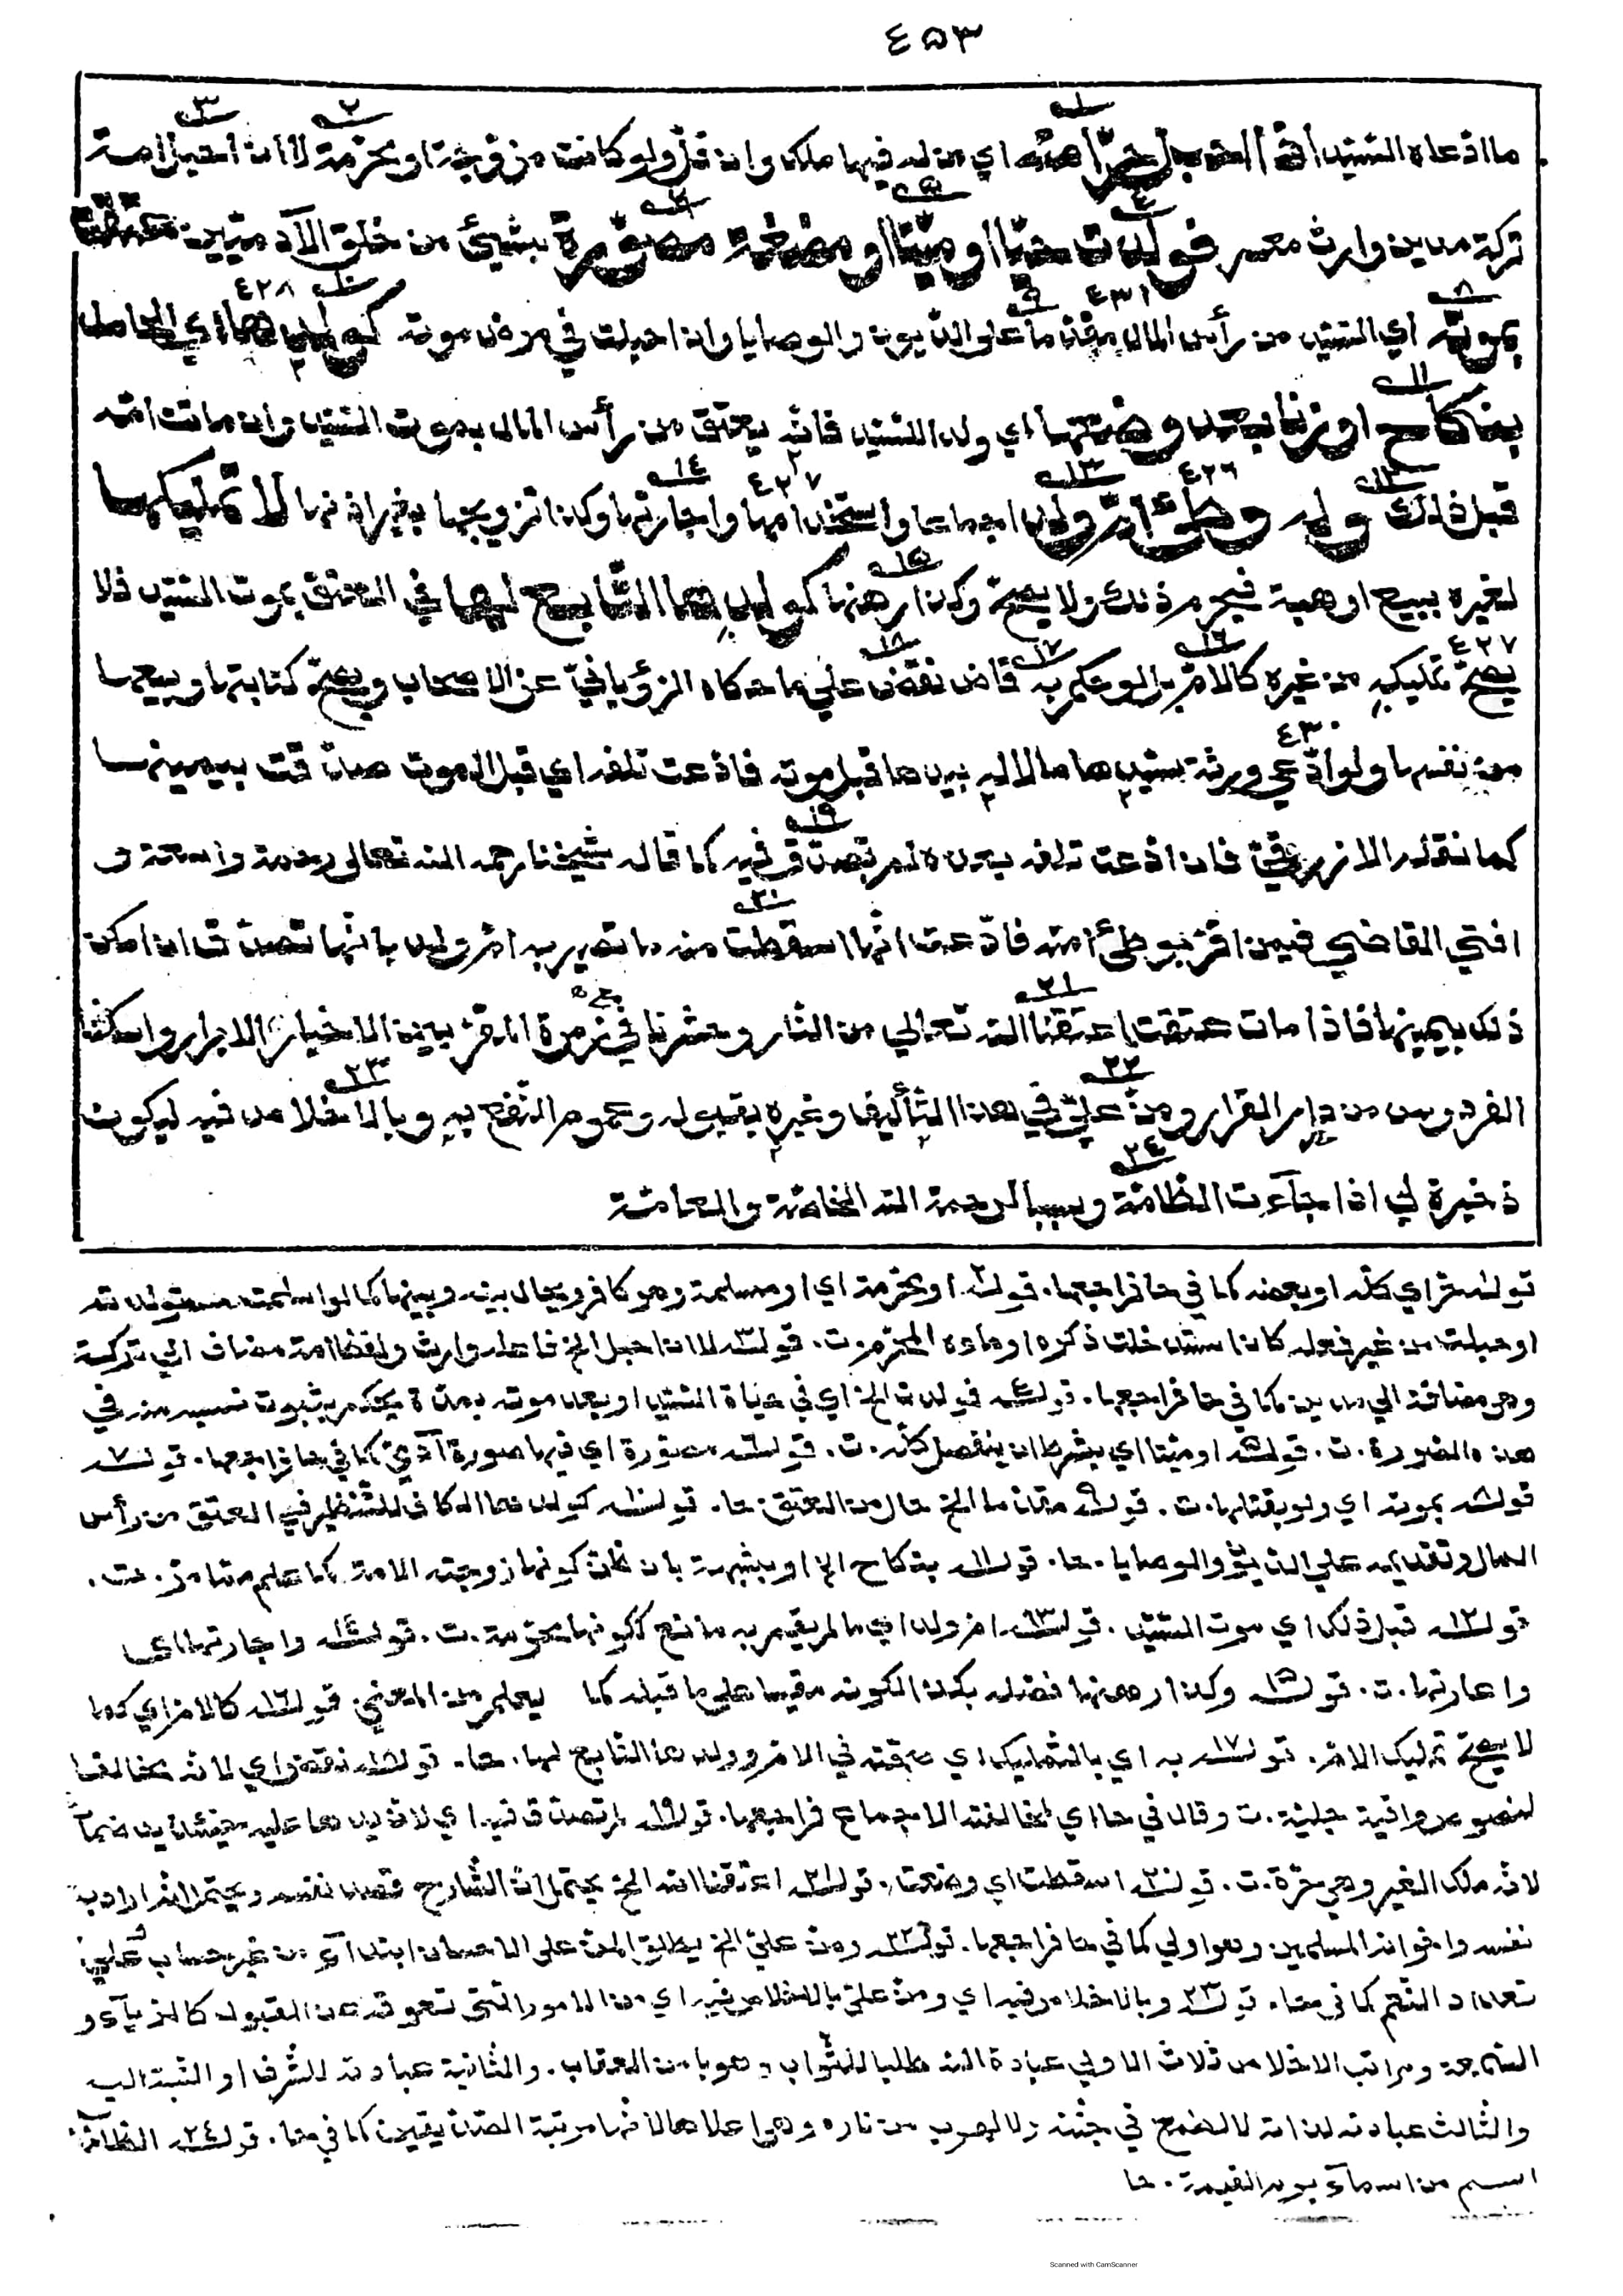 ٤٥٣
ما ادعاه السّيّد أنّه احبل حرّ أمته اي من له فيها ملك وان قلّ ولو كانت مزوّجة او محرّمة لا ان احبل امة
تركة مدين وارث معسر فولدت حيّا او ميّتا او مضغة مصوّرة بشيئ من خلق الآدميّين عتقت
بموته اي السّيّد من رأس المال مقدّما على الدّيون والوصايا وان احبلت في مرض موته كولدها اي الحاصل
بنكاح او زنا بعد وضعها اي ولد السّيّد فانّه يعتق من رأس المال بموت السّيّد وان ماتت امّه
قبل ذلك وله وطئ امّ ولد اجماعا واستخدامها واجارتها وكذا تزويجها بغير اذنها لا تمليكها
لغيره ببيع او هبة فيحرم ذلك ولا يصحّ وكذا رهنها كولدها التّابع لها في العتق بموت السّيّد فلا
يصحّ تمليكه من غيره كالامّ بل لو حكم به قاض نقض على ما حكاه الرّؤيانيّ عن الاصحاب ويصحّ كتابتها وبيعها
من نفسها ولو ادّعى ورثة سيّدها مالا له بيدها قبل موته فادّعت تلفه اي قبل الموت صدّقت بيمينها
كما نقله الازرقيّ فان ادّعت تلفه بعده لم تصدّق فيه كما قاله شيخنا رحمه الله تعالى رحمة واسعة و
افتى القاضي فيمن اقرّ بوطئ أمته فادّعت انّها اسقطت منه ما تصير به امّ ولد بانّها تصدّق ان امكن
ذلك بيمينها فاذا مات عتقت اعتقنا الله تعالى من النّار وحشرنا في زمرة المقرّبين الاخيار الابرار واسكننا
الفردوس من دار القرار ومنّ عليّ في هذا التّأليف وغيره بقبوله وعموم النّفع به وبالاخلاص فيه ليكون
ذخيرة لي اذا جآءت الطّامّة وسببا لرحمة الله الخاصّة والعامّة
قوله حرّ اي كلّه او بعضه كما في حا فراجعها. قوله او محرّمة اي او مسلمة وهو كافر ويحال بينه وبينها كما لو اسلمت مستولدته
او حبلت من غير فعله كان استدخلت ذكره او ماءه المحترم ت. قوله لا ان احبل الخ فاعله وارث ولفظ امة مضاف الى تركة
وهي مضافة الى مدين كما في حا فراجعها. قوله فولدت الخ اي في حياة السّيّد او بعد موته بمدّة يحكم بثبوت نسبه منه في
هذه الصّورة. ت. قوله او ميّتا اي بشرط ان ينفصل كلّه. ت. قوله مصوّرة اي فيها صورة آدميّ كما في حا فراجعها. قوله
قوله بموته اي ولو بقتلها. ت. قوله مقدّما الخ حال من العتق. حا. قوله كولدها الكاف للتّنظير في العتق من رأس
المال وتقديمه على الدّين والوصايا. حا. قوله بنكاح الخ او بشبهة بان ظنّ كونها زوجته الامة كما علم ممّا مرّ. ت.
قوله قبل ذلك اي موت السّيّد. قوله امّ ولد اي ما لم يقم به مانع ككونها محرّمة. ت. قوله واجارتها اي
واعارتها. ت. قوله وكذا رهنها فصله بكذا لكونه مقيسا على ما قبله كما ليعلم من المعنى قوله كالامّ اي كما
لا يصحّ تمليك الامّ. قوله به اي بالتّمليك اي صحّته في الامّ وولدها التّابع لها. حا. قوله نقض اي لانّه مخالف
لنصوص وافية جليّة. ت وقال في حا اي لمخالفته الاجماع فراجعها. قوله لم تصدّق فيه اي لانّ يدها عليه حينئذ يد ضمآن
لانّه ملك الغير وهي حرّة. ت. قوله اسقطت اي وضعت. قوله اعتقنا الله الخ يحتمل انّ الشّارح قصد نفسه ويحتمل انّه اراد به
نفسه واخوانه المسلمين وهو اولى كما في حا فراجعها. قوله ومنّ عليّ الخ يطلق المنّ على الاحسان ابتدآء من غير حساب وعلى
تعداد النّعم كما في حا. قوله وبالاخلاص فيه اي ومنّ عليّ بالاخلاص فيه اي من الامور الّتي تعوقه عن القبول كالرّيآء و
السّمعة ومراتب الاخلاص ثلاث الاولى عبادة الله طلبا للثّواب وهربا من العقاب. والثّانية عبادته للشّرف او النّسبة اليه
والثّالث عبادته لذاته لا لطمع في جنّته ولا لهرب من ناره وهي اعلاها لانّها مرتبة الصّدّيقين كما في حا. قوله الطّآمّة
اسم من اسمآء يوم القيمة. حا
Scanned with CamScanner